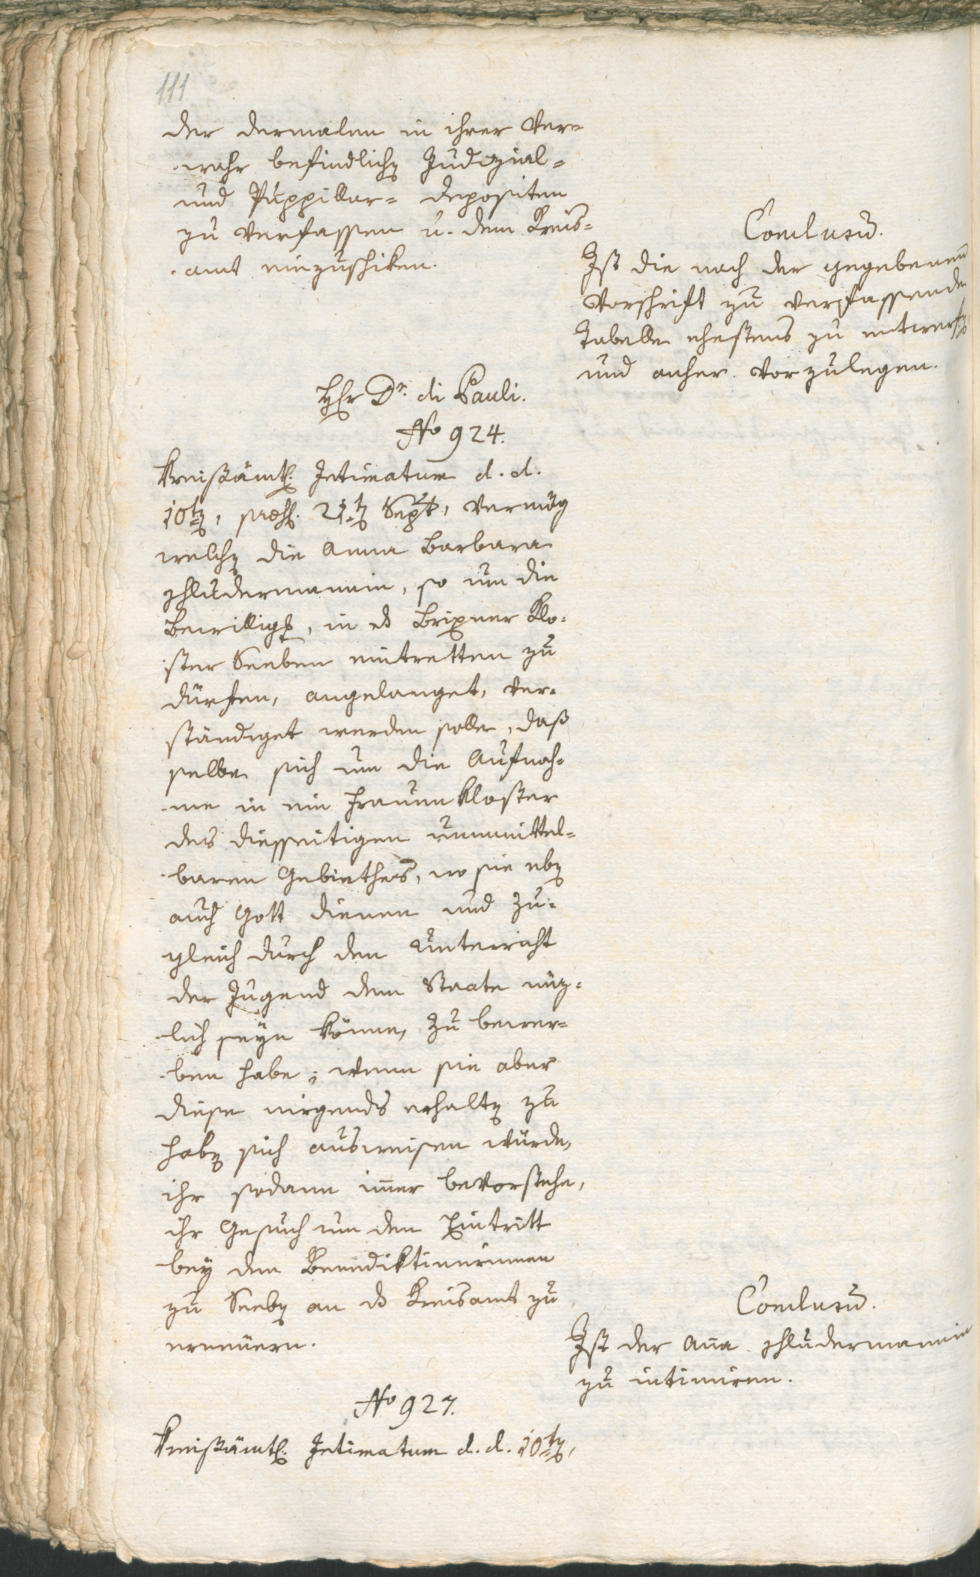 111
der dermalen in ihrer Ver=
wahr befindlichen Judizial=
und Puppillar= Depositen
zu verfassen u. dem Kreis=
amt einzuschiken.
Conclusū.
Ist die nach der gegebenen
Vorschrift zu verfassende
Tabelle ehestens zu entwerfen
und anher vorzulegen.
Hhr Dr. di Pauli.
No 924.
Kreißämtl. Intimatum d. d.
10ten, praes. 21ten Sept, vermög
welchen die Anna Barbara
Schludermannin, so um die
Bewilligg, in ds Brixner Klo=
ster Seeben eintretten zu
dürfen, angelanget, ver=
ständiget werden solle, daß
selbe sich um die Aufnah=
me in ein Frauenkloster
des diesseitigen unmittel=
baren Gebiethes, wo sie eben
auch Gott dienen und zu=
gleich durch den Unterricht
der Jugend dem Staate nüz=
lich seyn könne, zu bewer=
ben habe; wenn sie aber
diese nirgends erhalten zu
haben sich ausweisen würde,
ihr sodann im̄er bevorstehe,
ihr Gesuch um den Eintritt
bey den Benediktinerinnen
zu Seeben an ds Kreisamt zu
erneuern.
Conclusū.
Ist der An̄a Schludermannin
zu intimiren.
No 927.
Kreißämtl. Intimatum d. d. 10ten,